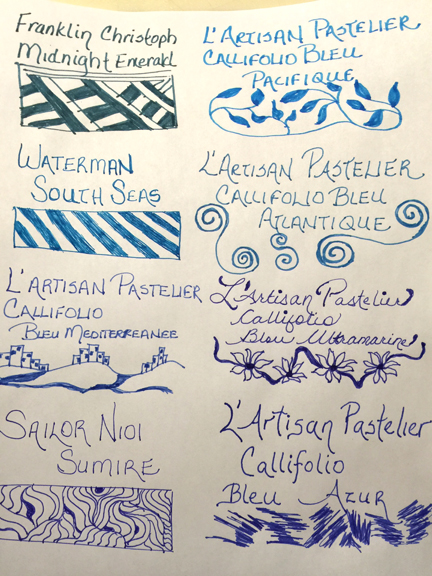 Franklin Christoph
Midnight Emerald
L'Artisan Pastelier
Callifolio Bleu
Pacifique
Waterman
South Seas
L'Artisan Pastelier
Callifolio Bleu
Atlantique
L'Artisan Pastelier
Callifolio
Bleu Mediterreanee
L'Artisan Pastelier
Callifolio
Bleu Ultramarine
Sailor Nioi
Sumire
L'Artisan Pastelier
Callifolio
Bleu Azur